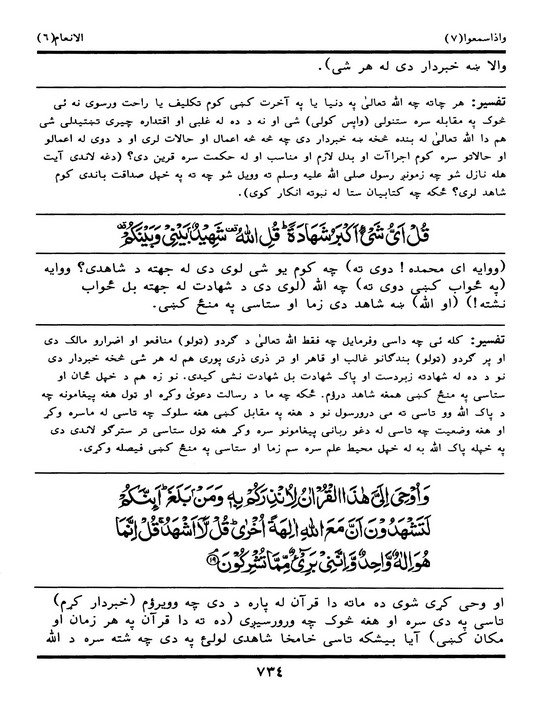 واذاسمعوا(٧)
الانعام(٦)
والا ښه خبردار دی له هر شی).
تفسیر: هر چاته چه الله تعالیٰ په دنیا یا په آخرت کښی کوم تکلیف یا راحت ورسوی نه ئی
څوک په مقابله سره ستنولی (واپس کولی) شی او نه د ده له غلبی او اقتداره چیری تښتیدلی شی
هم دا الله تعالیٰ له بنده څخه ښه خبردار دی چه څه څه اعمال او حالات لری او د دوی له اعمالو
او حالاتو سره کوم اجراآت او بدل لازم او مناسب او له حکمت سره قرین دی؟ (دغه لاندی آیت
هله نازل شو چه زمونږ رسول صلی الله علیه وسلم ته وویل شو چه ته په خپل صداقت باندی کوم
شاهد لری؟ ځکه چه کتابیان ستا له نبوته انکار کوی).
قُلْ اَیُّ شَیْءٍ اَکْبَرُ شَهَادَةً قُلِ اللهُ شَهِیْدٌۢ بَیْنِیْ وَبَیْنَکُمْ
(ووایه ای محمده! دوی ته) چه کوم یو شی لوی دی له جهته د شاهدی؟ ووایه
(په ځواب کښی دوی ته) چه الله (لوی دی د شهادت له جهته بل ځواب
نشته!) (او الله) ښه شاهد دی زما او ستاسی په منځ کښی.
تفسیر: کله ئی چه داسی وفرمایل چه فقط الله تعالیٰ د گردو (تولو) منافعو او اضرارو مالک دی
او پر گردو (تولو) بندگانو غالب او قاهر او تر ذری ذری پوری هم له هر شی څخه خبردار دی
نو د ده له شهادته زبردست او پاک شهادت بل شهادت نشی کیدی. نو زه هم د خپل ځان او
ستاسی په منځ کښی همغه شاهد درؤم. ځکه چه ما د رسالت دعویٰ وکړه او تول هغه پیغامونه چه
د پاک الله وو تاسی ته می درورسول نو د هغه په مقابل کښی هغه سلوک چه تاسی له ماسره وکړ
او هغه وضعیت چه تاسی له دغو ربانی پیغامونو سره وکړ هغه تول ستاسی تر سترگو لاندی دی
په خپله پاک الله به له خپل محیط علم سره سم زما او ستاسی په منځ کښی فیصله وکړی.
وَاُوْحِیَ اِلَیَّ هٰذَا الْقُرْاٰنُ لِاُنْذِرَکُمْ بِهٖ وَمَنْۢ بَلَغَ اَئِنَّکُمْ
لَتَشْهَدُوْنَ اَنَّ مَعَ اللهِ اٰلِهَةً اُخْرٰی قُلْ لَّاۤ اَشْهَدُ قُلْ اِنَّمَا
هُوَ اِلٰهٌ وَّاحِدٌ وَّاِنَّنِیْ بَرِیْٓءٌ مِّمَّا تُشْرِکُوْنَ ﴿۱۹﴾
او وحی کړی شوی ده ماته دا قرآن له پاره د دی چه وویرؤم (خبردار کړم)
تاسی په دی سره او هغه څوک چه ورورسیږی (ده ته دا قرآن په هر زمان او
مکان کښی) آیا بیشکه تاسی خامخا شاهدی لولئ په دی چه شته سره د الله
٧٣٤